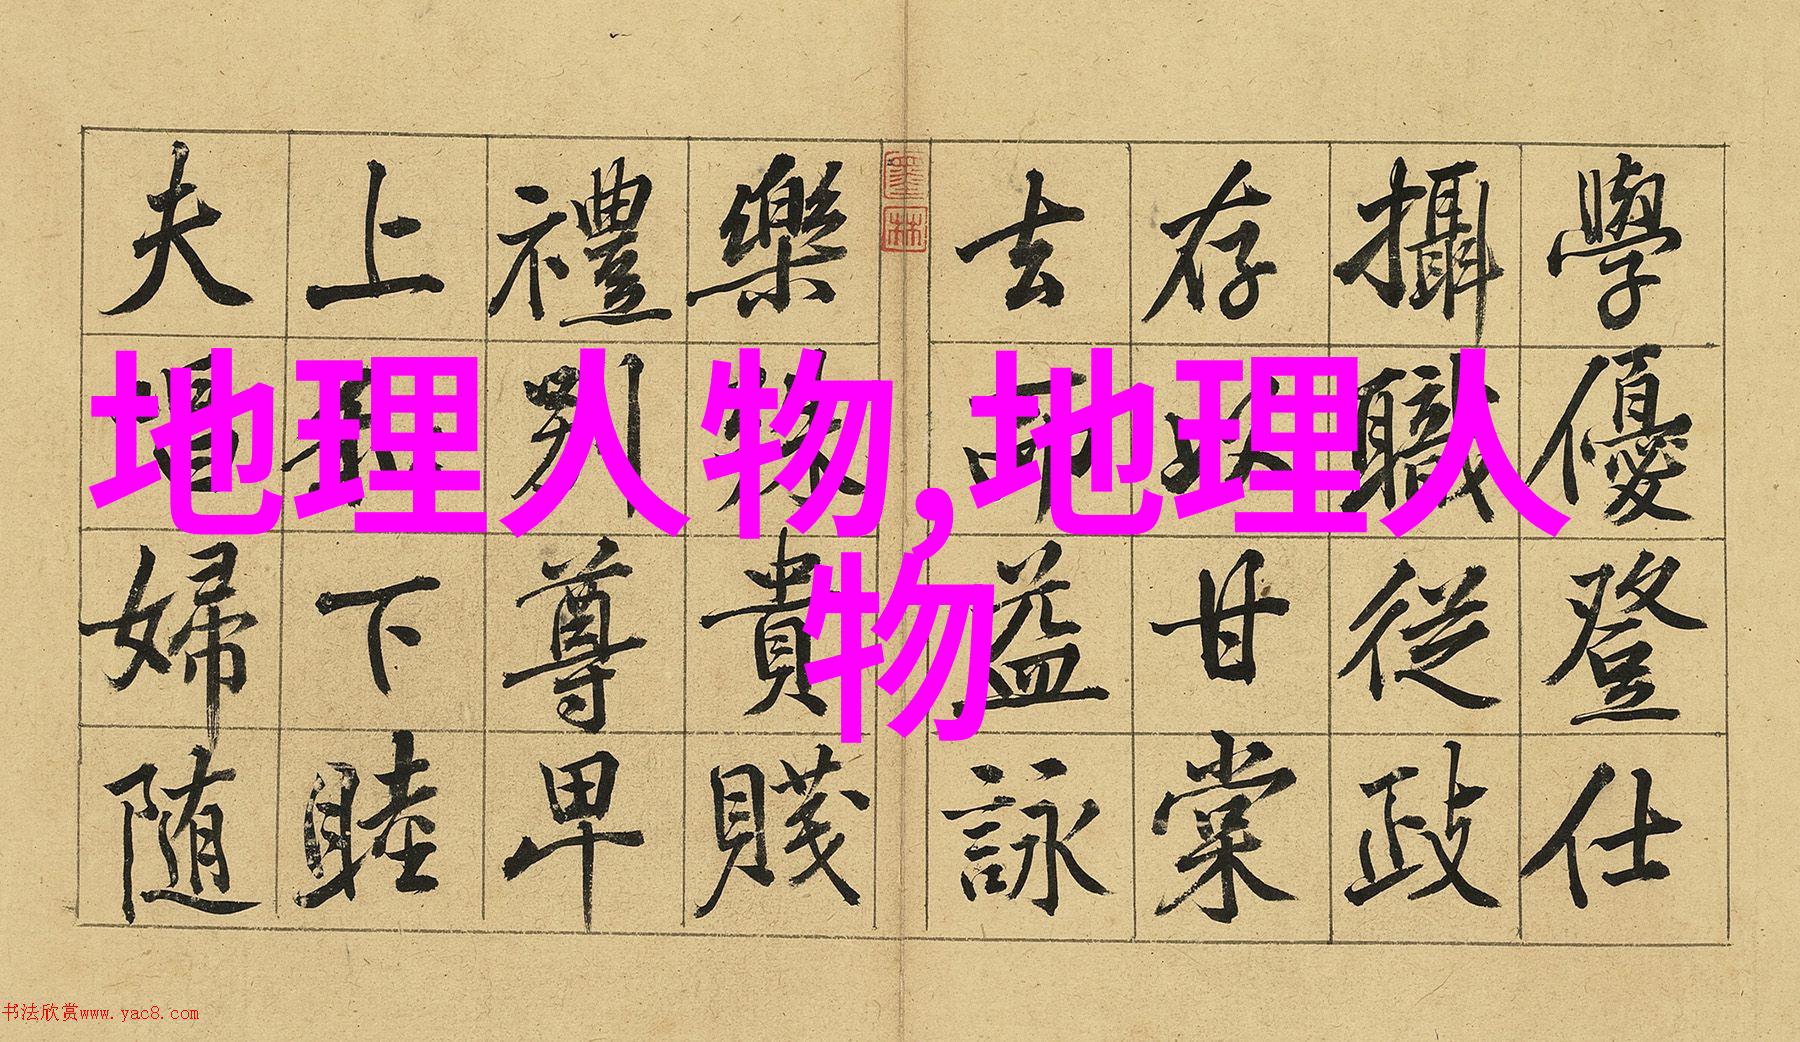 地理人物,地理人
物
學優登仕
攝職從政
存以甘棠
去而益詠
墨林
樂殊貴賤
禮別尊卑
上下睦
夫唱婦随
书法欣赏www.yac8.com